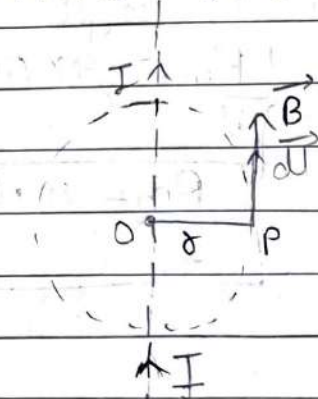 I
B
dl
O r P
I